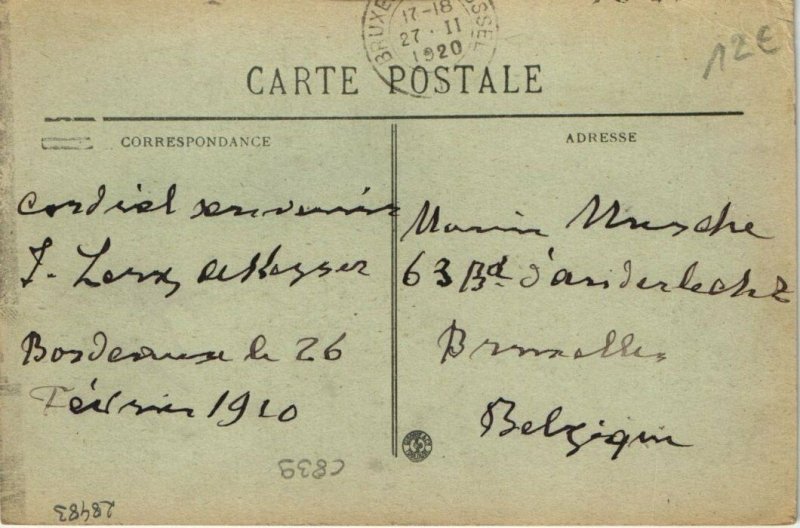 BRUXE
USSEL
17-18
27 · II
1920
12€
CARTE POSTALE
CORRESPONDANCE
ADRESSE
Cordial souvenir
J. Leroy deKeyser
Bordeaux le 26
Février 1920
63 Bd. d'anderlecht
Bruxelles
Belgique
C839
28483